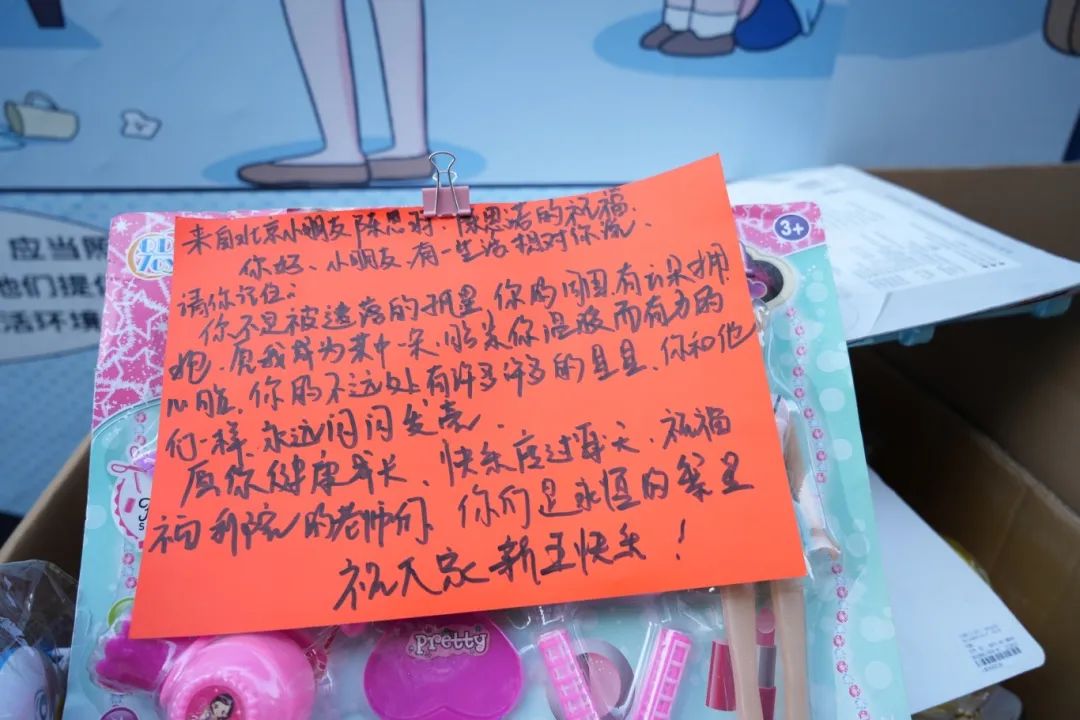 来自北京小朋友陈思羽、陈思诺的祝福.
你好、小朋友,有一些话想对你说、
请你记住:
你不是被遗落的孤星,你的周围有云朵拥
抱,愿我成为其中一朵,贴着你温暖而有力的
心脏,你的不远处有许多许多的星星,你和他
们一样,永远闪闪发亮.
愿你健康成长、快乐度过每天、祝福
福利院的老师们,你们是永恒的繁星
祝大家新年快乐!
3+
Pretty
应当
他们提
活环境